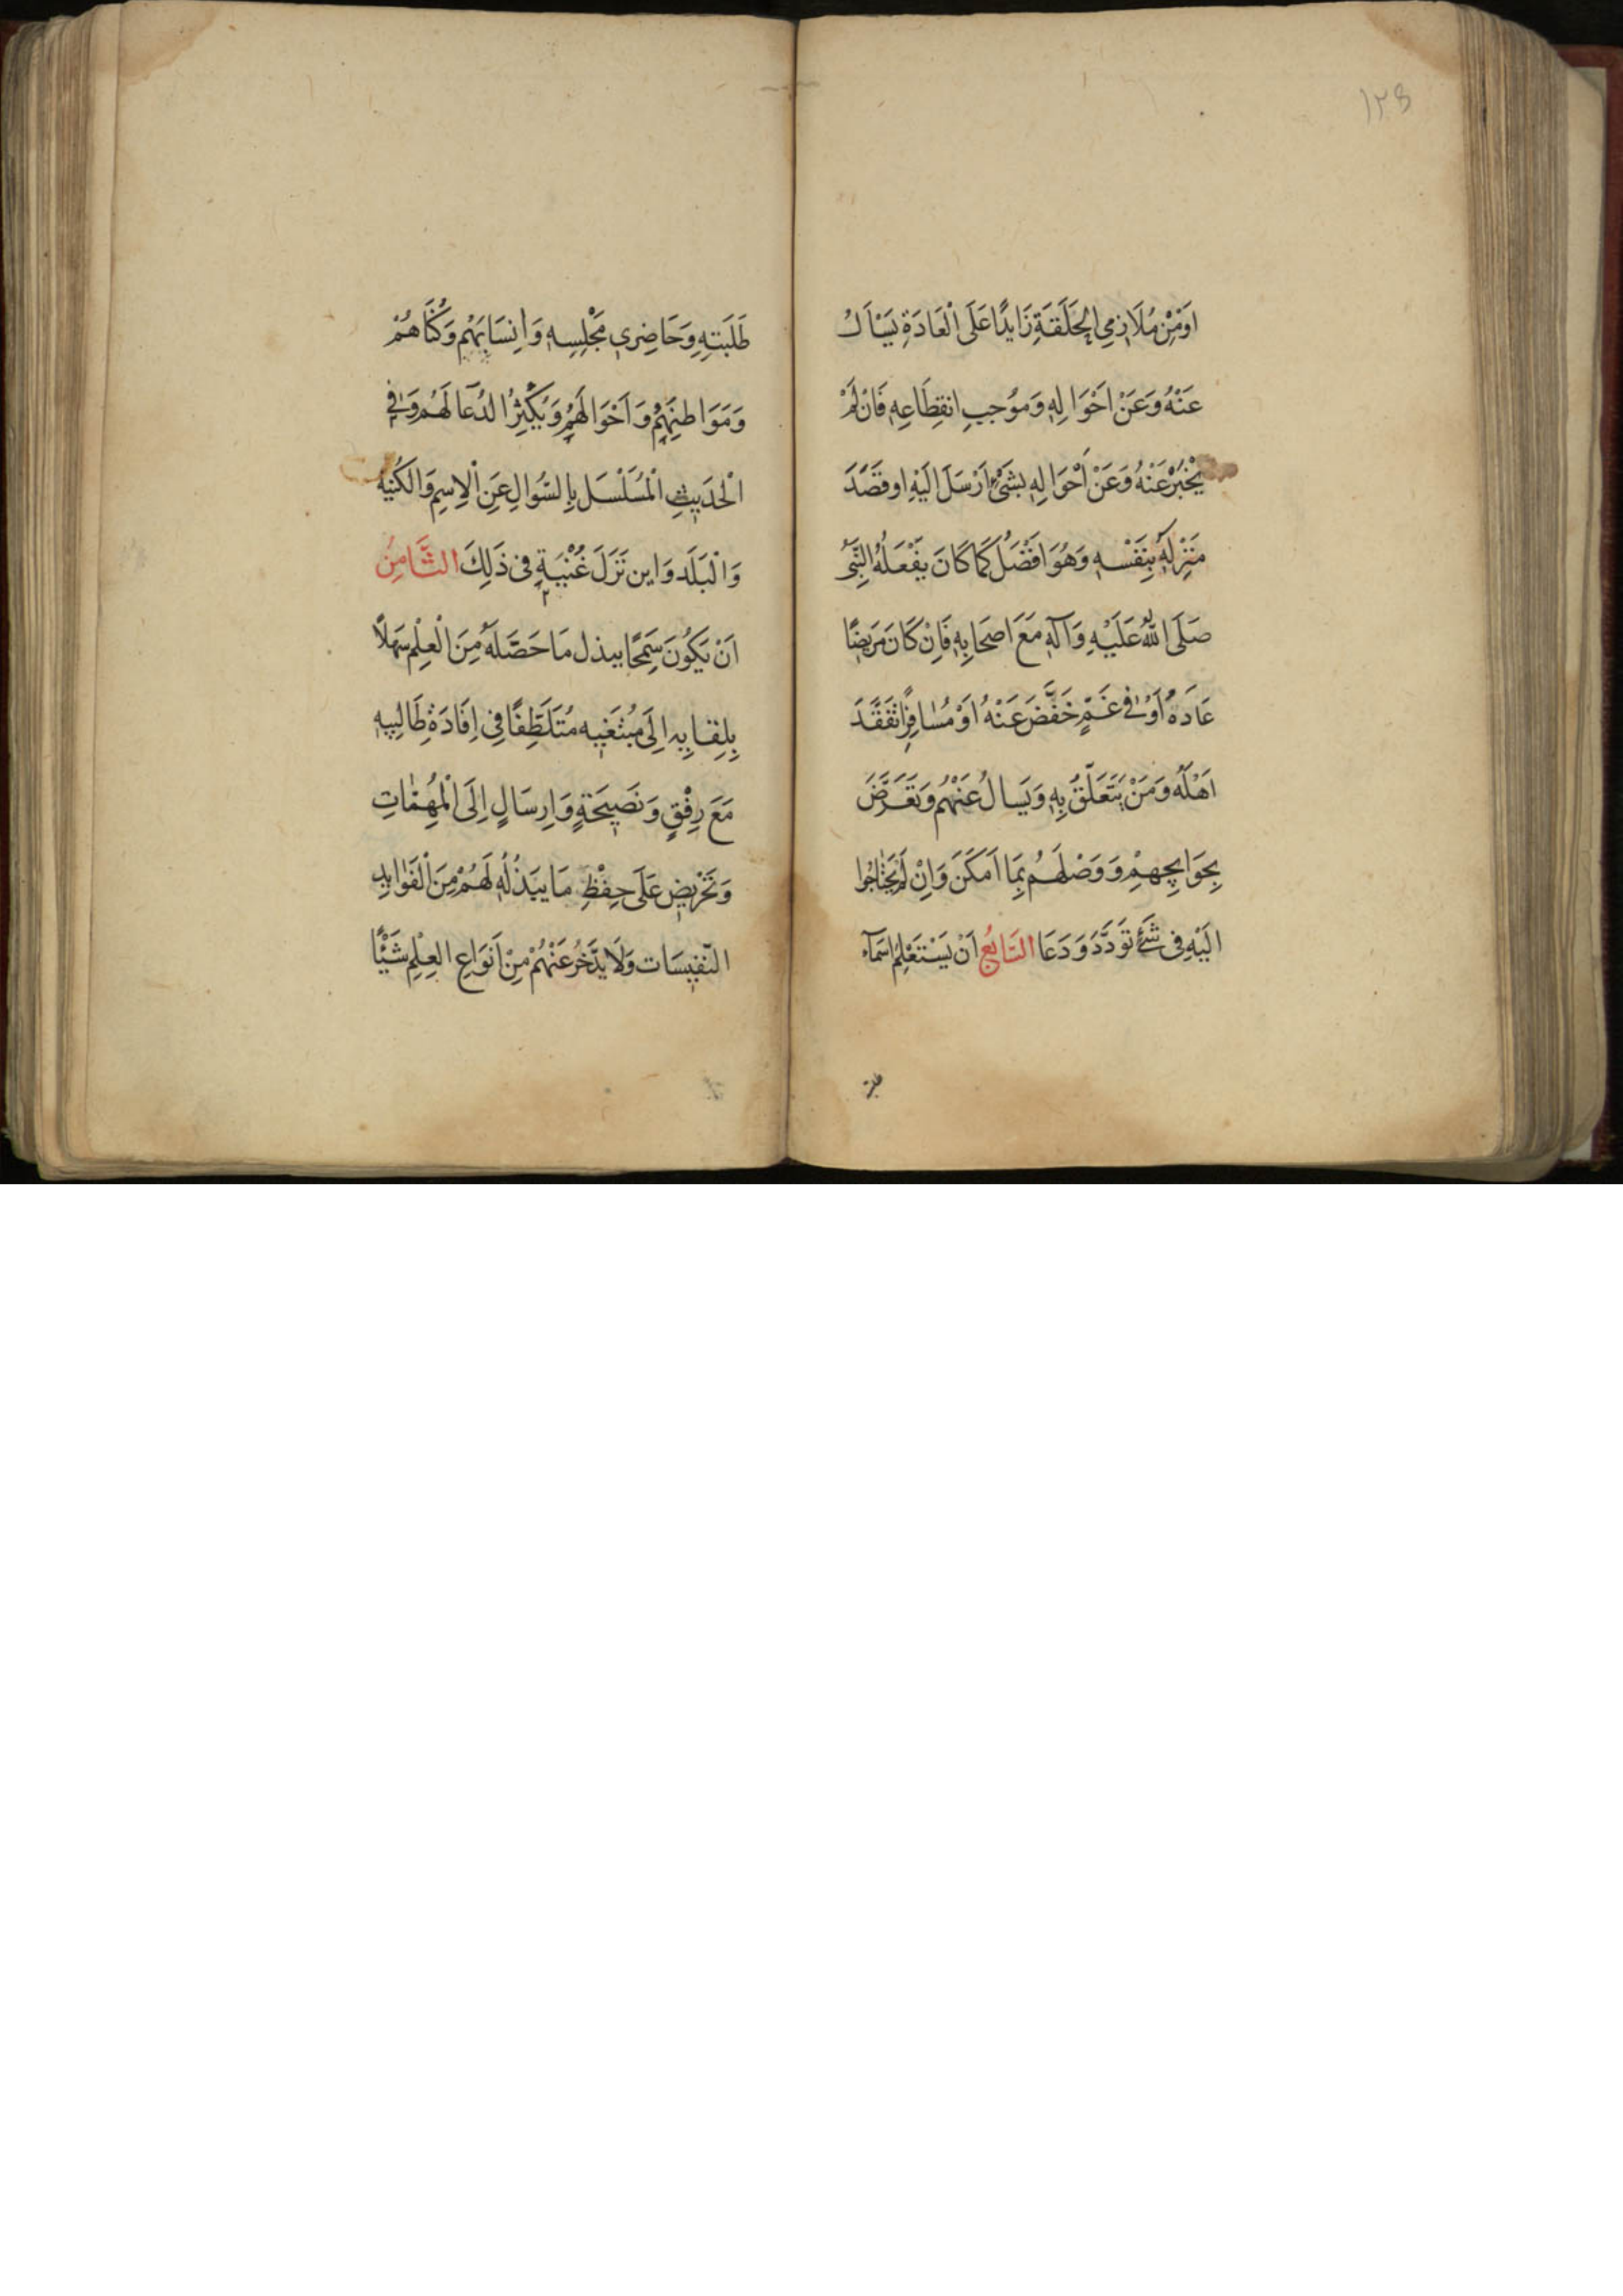 ١٢٥
اَوْمِنْ مُلَازِمِى الحَلَقَةِ زَايدًا عَلَى الْعَادَةِ يَسْاَلُ
عَنْهُ وَعَنْ اَحْوَالِهِ وَمُوجِبِ انقِطَاعِهِ فَاِنْ لَمْ
يُخْبَرْ عَنْهُ وَعَنْ اَحْوَالِهِ بشَىْءٍ اَرْسَلَ اِلَيْهِ اوقَصَدَ
مَنْزِلِهُ بِنَفْسِهِ وَهُوَ اَفْضَلُ كَمَا كَانَ يَفْعَلُهُ النَّبِىُّ
صَلَى اللهُ عَلَيْهِ وَآلِهِ مَعَ اَصحَابِهِ فَاِنْ كَانَ مَرِيضًا
عَادَهُ اَوْفى غَمٍّ خَفَّضَ عَنْهُ اَوْ مُسَافِرًا تفَقَّدَ
اَهْلَهُ وَمَنْ يَتَعَلَّقُ بِهِ وَيَسالُ عَنْهُمْ وَتَعَرَّضَ
بِحَوَايجِهِمْ وَوَصْلَهُمْ بِمَا اَمكَنَ وَاِنْ لَمْ يَحْتَاجُوا
اِلَيْهِ فِى شَىْءٍ تَوَدَّدَ وَدَعَا السَّابِعُ اَنْ يَسْتَعْلِمَ اَسْمَآءَ
طَلَبَتِهِ وَحَاضِرِى مَجْلِسِهِ وَاَنسَابَهُمْ وَكُنَاهُمْ
وَمَوَاطِنَهِمْ وَاَحْوَالَهُمْ وَيُكْثِرُ الدُعَا لَهُمْ وَفى
الْحَدِيثِ الْمُسَلْسَل بِالسُّوالِ عَنِ الْاِسِمِ وَالكُنيَة
وَالْبَلَد وَاين نَزَلَ غُنْيَةٍ فِى ذَلِكَ الثَّامِنُ
اَنْ يَكُونَ سَمِحًا ببذل مَا حَصَّلَهُ مِنَ الْعِلْمِ سَهْلًا
بِلِقايِهِ اِلَى مُبْتَغِيهِ مُتَلَطِّفًا فِى اِفَادَةِ طَالِبِيهِ
مَعَ رِفْقٍ وَنَصِيحَةٍ وَاِرسَالٍ اِلَى الْمُهِمَّاتِ
وَتَحْرِيضٍ عَلَى حِفْظِ مَا يَبَذُلُهُ لَهُمْ مِنَ الْفَوَايدِ
النَّفِيسَات وَلَا يدَّخِرُ عَنْهُمْ مِنْ اَنْوَاعِ العِلْمِ شَيْئًا